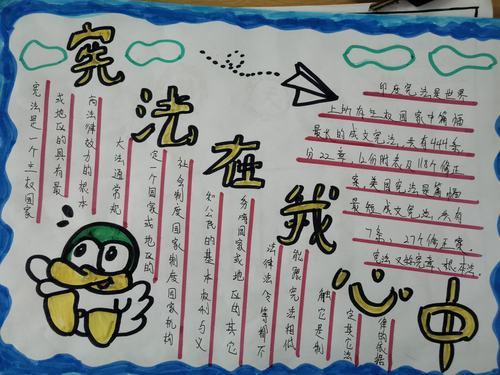 宪法在我心中
宪法是一个主权国家
或地区的具有最
高法律效力的根本
大法通常规
定一个国家或地区的
社会制度国家制度国家机构
和公民的基本权利与义
务等国家或地区的其它
法律法令等都不
能跟宪法相低
触它是制
定其它法
律的依据
印度宪法是世界
上所有主权国家中篇幅
最长的成文宪法,共有444条,
分22章,12份附表及118个修正
案,美国宪法是篇幅
最短成文宪法,共有
7条,27个修正案.
宪法又称宪章、根本法.